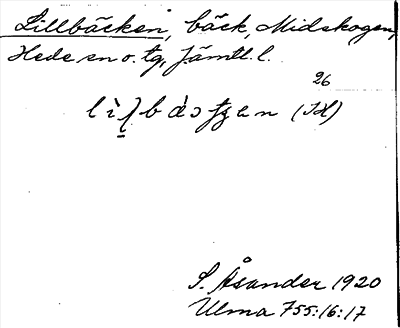 Lillbäcken, bäck, Midskogen,
Hede sn o. tg, Jämtl. l.
26
S. Åsander 1920
Ulma 755:16:17